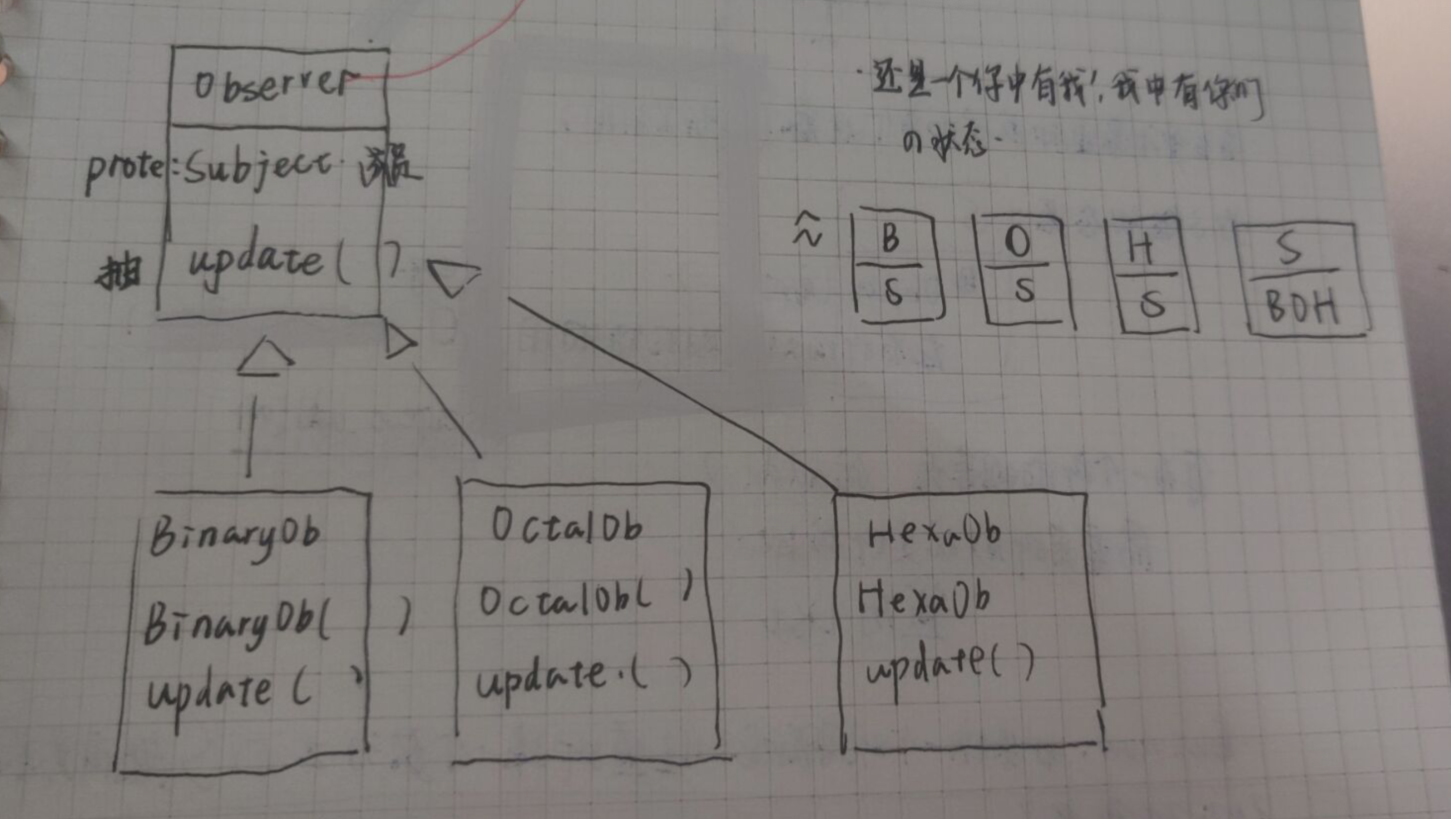 Observer
prote:Subject.
抽 update()
·还是一个你中有我!我中有你们
の状态.
≈
B
S
O
S
H
S
S
BOH
BinaryOb
BinaryOb()
update()
OctalOb
OctalOb()
update.()
HexaOb
HexaOb
update()